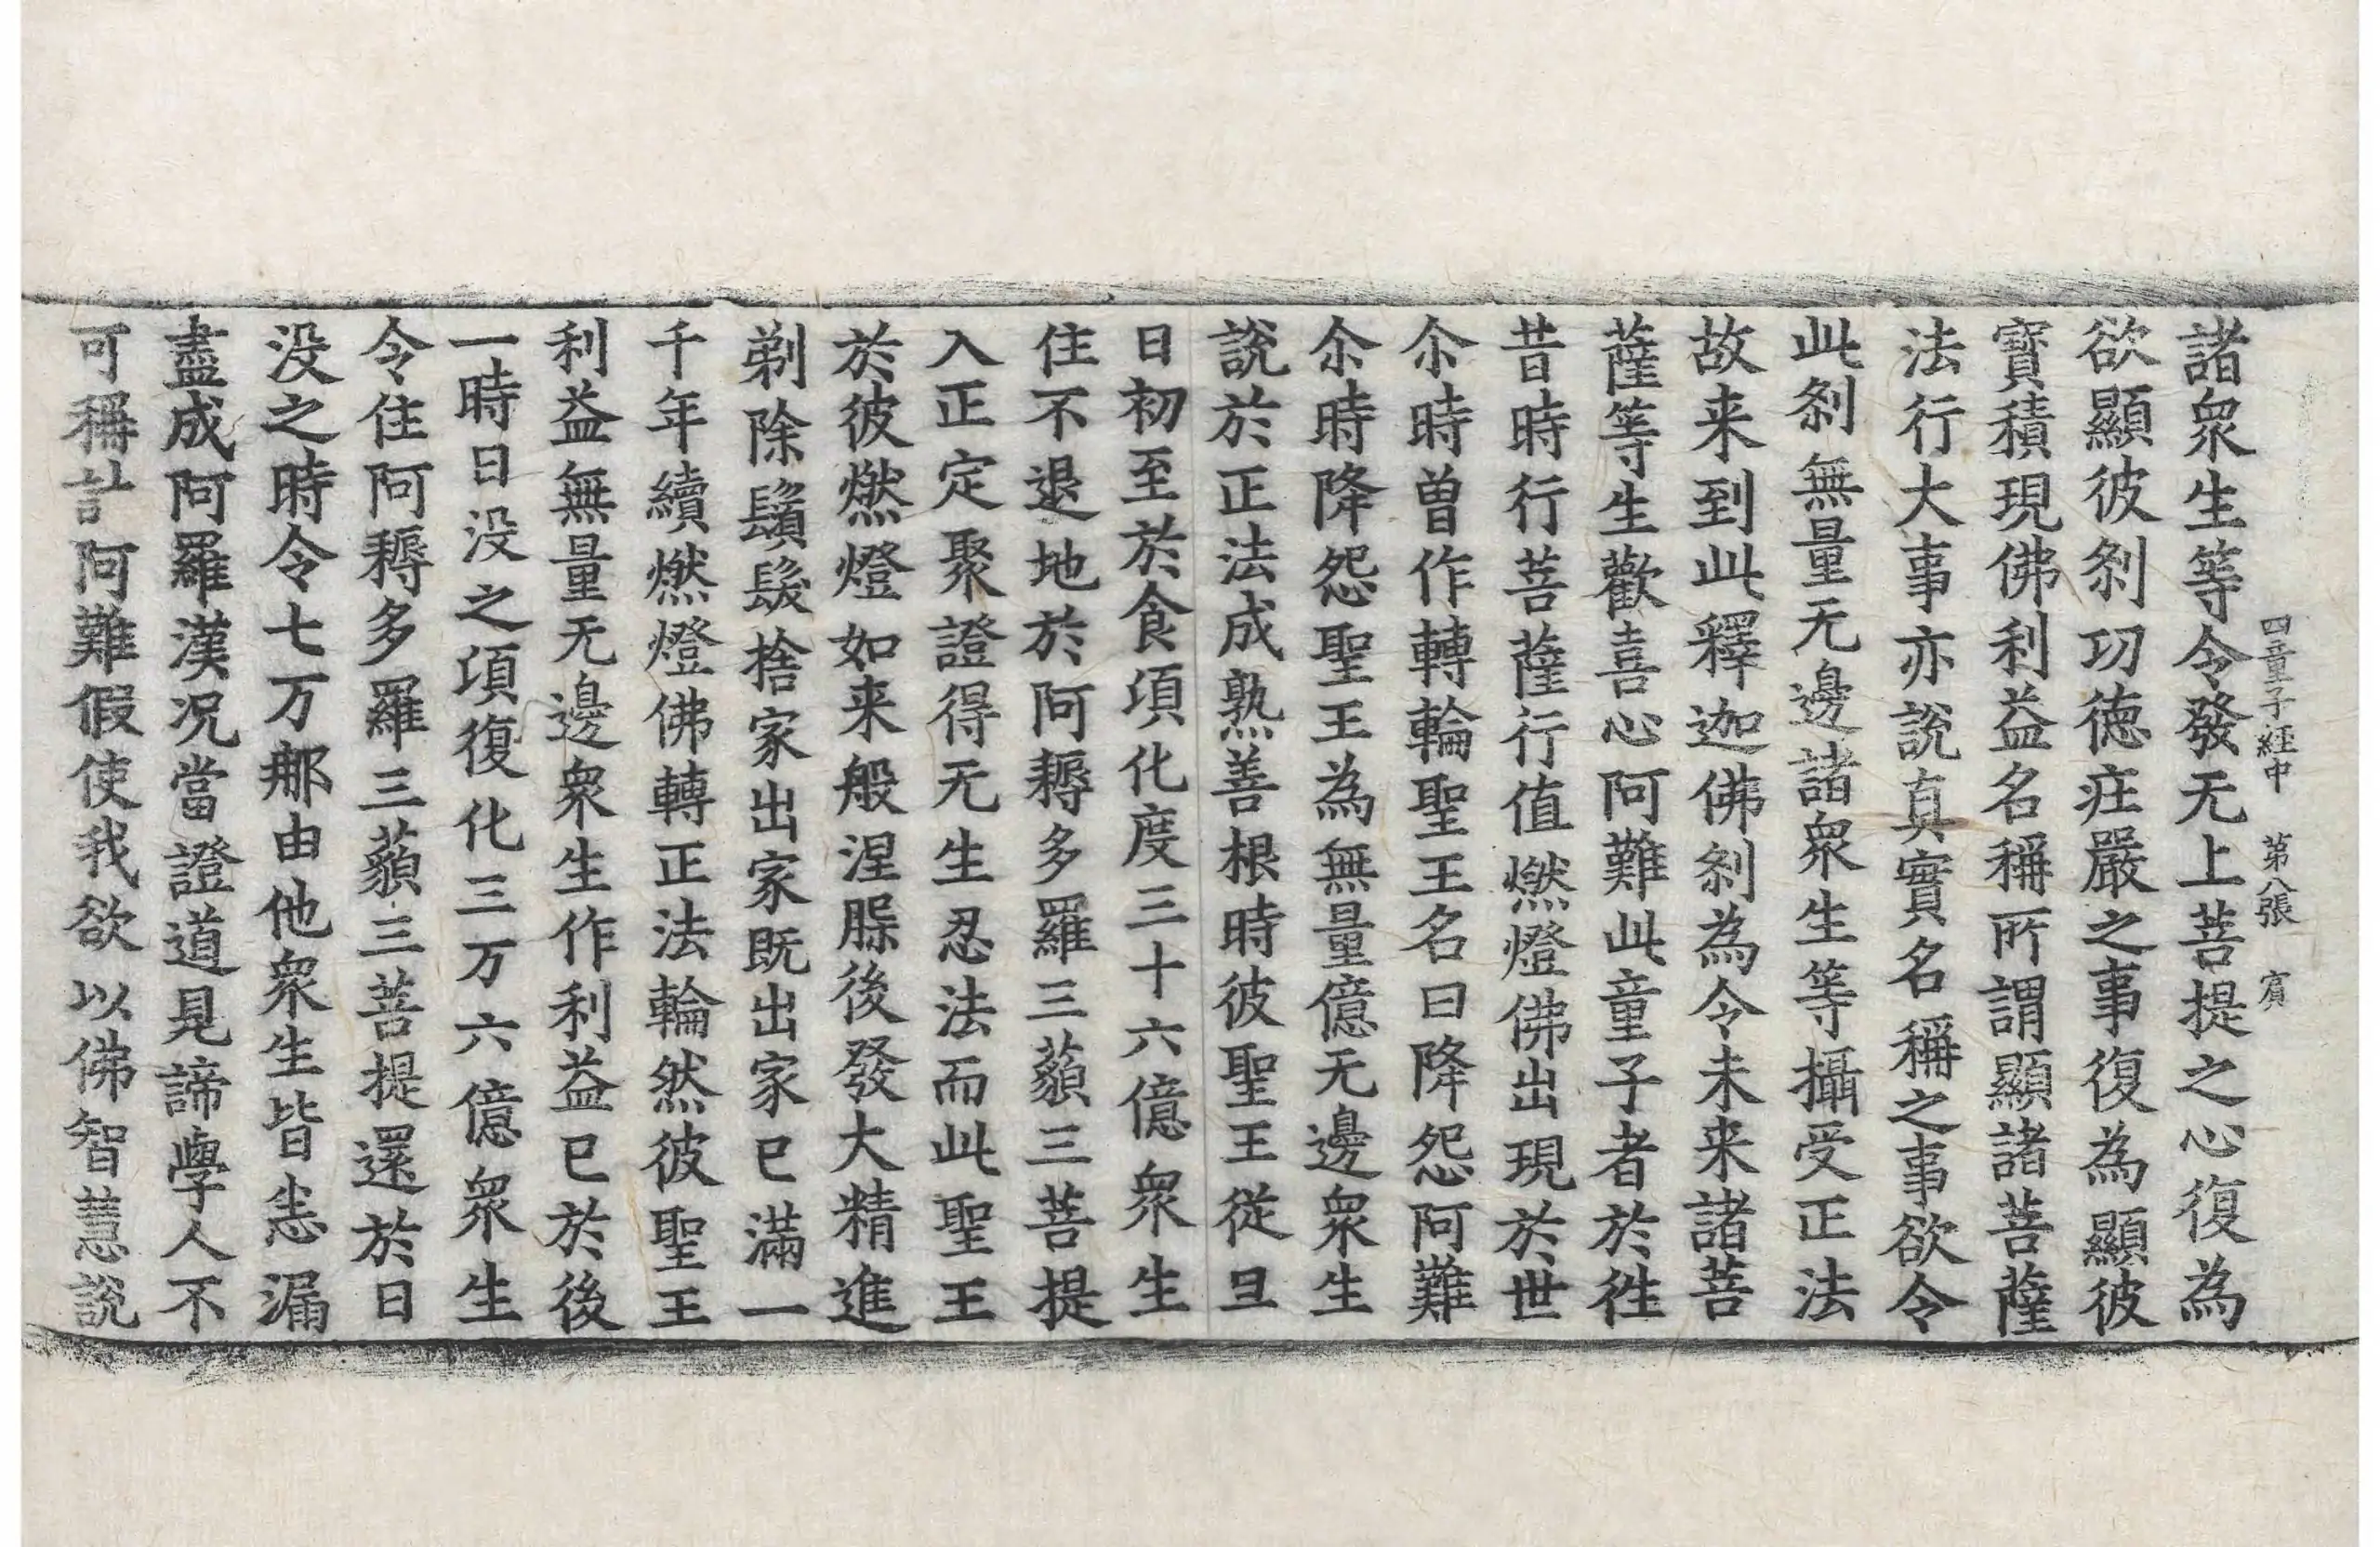 四童子經中 第八張 賓
諸衆生等令發无上菩提之心復為
欲顯彼刹功德庄嚴之事復為顯彼
寶積現佛利益名稱所謂顯諸菩薩
法行大事亦說真實名稱之事欲令
此刹無量无邊諸衆生等攝受正法
故来到此釋迦佛刹為令未来諸菩
薩等生歡喜心阿難此童子者於徃
昔時行菩薩行值燃燈佛出現於世
尒時曾作轉輪聖王名曰降怨阿難
尒時降怨聖王為無量億无邊衆生
說於正法成熟善根時彼聖王從旦
日初至於食項化度三十六億衆生
住不退地於阿耨多羅三藐三菩提
入正定聚證得无生忍法而此聖王
於彼燃燈如来般涅槃後發大精進
剃除鬚髮捨家出家既出家已滿一
千年續燃燈佛轉正法輪然彼聖王
利益無量无邊衆生作利益已於後
一時日没之項復化三万六億衆生
令住阿耨多羅三藐三菩提還於日
没之時令七万那由他衆生皆盡漏
盡成阿羅漢况當證道見諦學人不
可稱計阿難假使我欲以佛智慧說